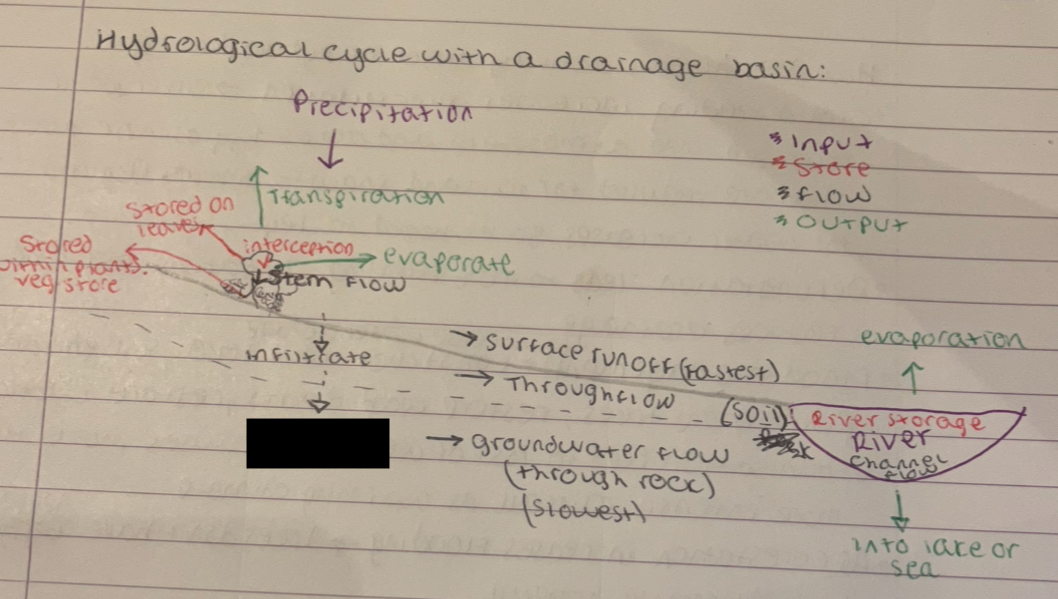 Hydrological cycle with a drainage basin:
Precipitation
* Input
* Store
* Flow
* Output
Transpiration
stored on
leaves
interception
evaporate
Stored
plants.
veg store
Stem flow
infiltrate
surface runoff (fastest)
Throughflow
(soil)
evaporation
River storage
River
channel
flow
groundwater flow
(through rock)
(slowest)
into lake or
sea